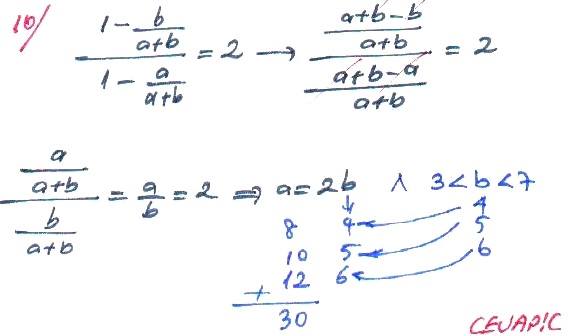 10/ (1 - b/(a+b)) / (1 - a/(a+b)) = 2 → ((a+b-b)/(a+b)) / ((a+b-a)/(a+b)) = 2
(a/(a+b)) / (b/(a+b)) = a/b = 2 ⇒ a = 2b ∧ 3 < b < 7
8 4 ← 4
10 5 ← 5
+ 12 6 ← 6
30
CEVAP:C